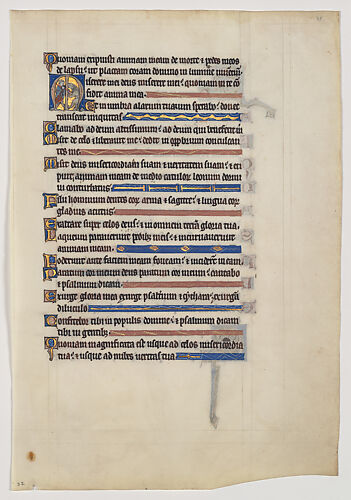 Quoniam eripuisti animam meam de morte ⁊ pedes meos
de lapsu: ut placeam coram domino in lumine uiuentiu
Miserere mei deus miserere mei: quoniam in te con
fidit anima mea
Et in umbra alarum tuarum sperabo: donec
transeat iniquitas
Clamabo ad deum altissimum: ad deum qui benefecit m
Misit de celo ⁊ liberauit me: dedit in opprobrium conculcan
tes me
Misit deus misericordiam suam ⁊ ueritatem suam: ⁊ eri
puit animam meam de medio catulor leonum dormi
ui conturbatus
Filii hominum dentes eor arma ⁊ sagitte: ⁊ lingua eor
gladius acutus
Exaltare super celos deus: ⁊ in omnem terram gloria tua
Laqueum parauerunt pedibz meis: ⁊ incuruauerunt
animam meam
Foderunt ante faciem meam foueam: ⁊ inciderunt in eam
Paratum cor meum deus paratum cor meum: cantabo
⁊ psalmum dicam
Exurge gloria mea exurge psalterium ⁊ cythara: exurga
diluculo
Confitebor tibi in populis domine: ⁊ psalmum dicam
tibi in gentibz
Quoniam magnificata est usque ad celos misericordia
tua: ⁊ usque ad nubes ueritas tua